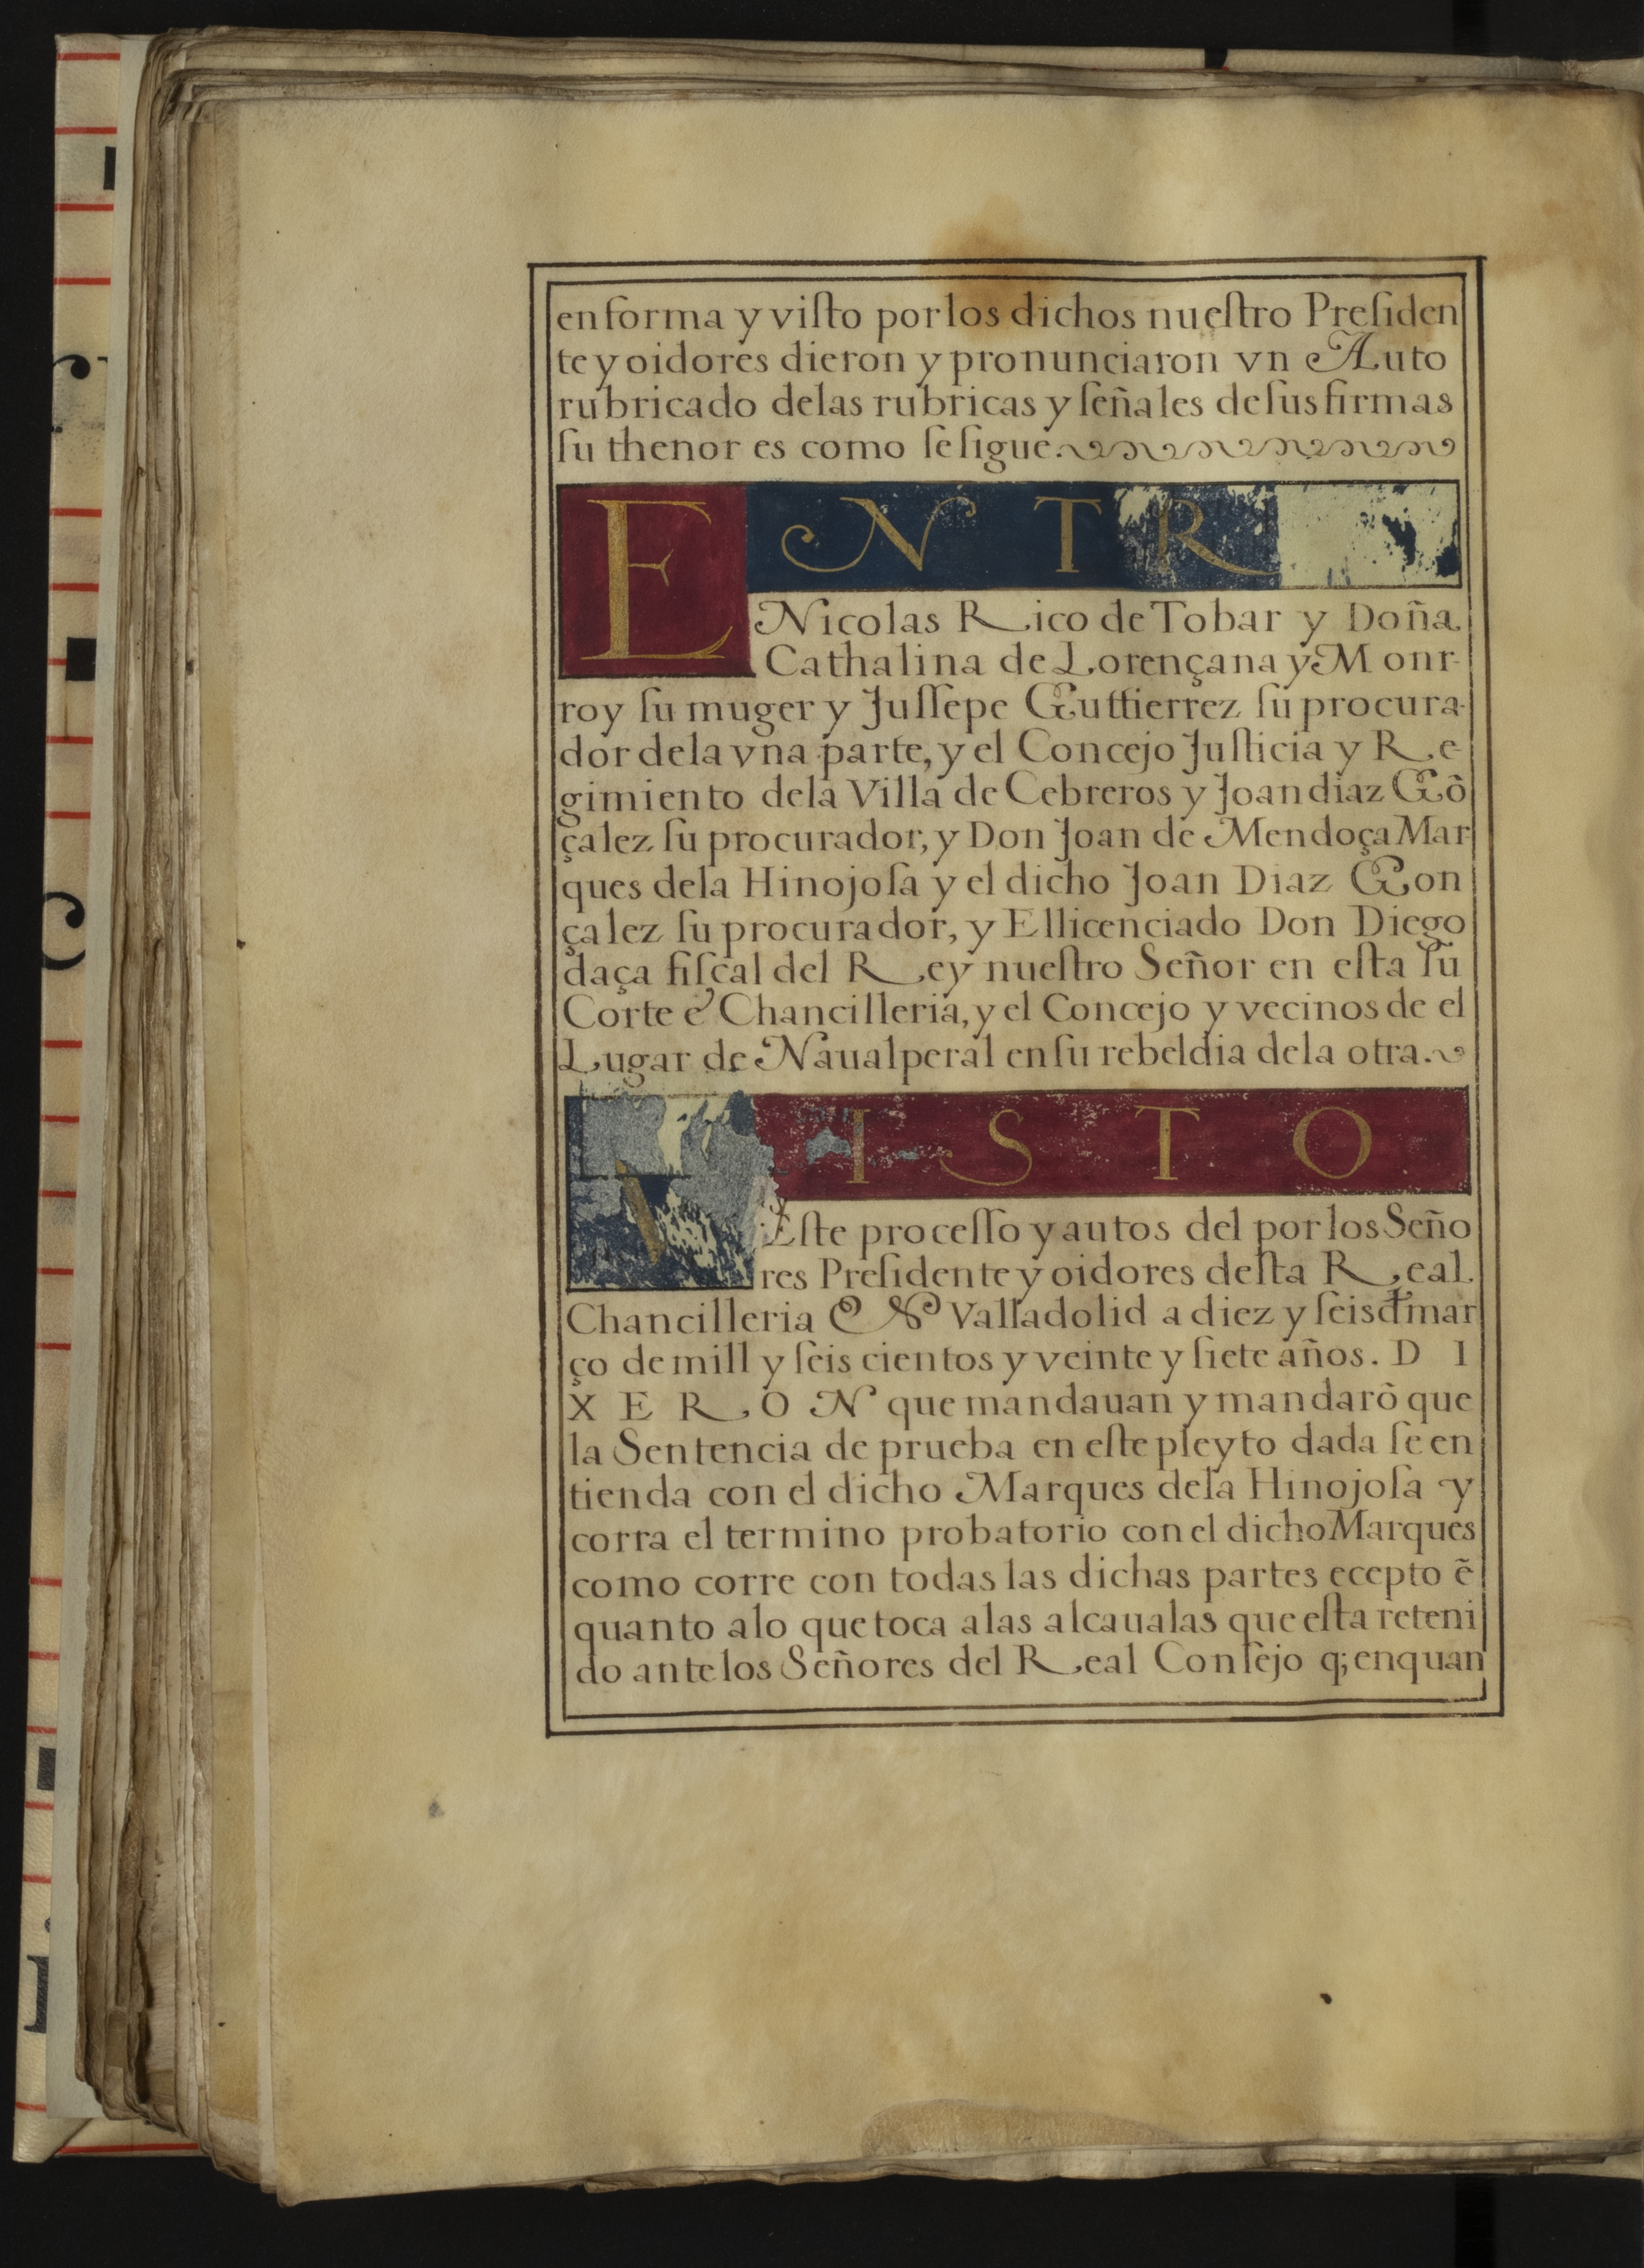 en forma y viſto por los dichos nueſtro Preſiden
te y oidores dieron y pronunciaron vn Auto
rubricado delas rubricas y ſeñales deſus firmas
ſu thenor es como ſe ſigue.
ENTR
Nicolas Rico de Tobar y Doña
Cathalina de Lorençana y Monr-
roy ſu muger y Juſſepe Guttierrez ſu procura-
dor dela vna parte, y el Concejo Juſticia y Re-
gimiento dela Villa de Cebreros y Joan diaz Gõ
çalez ſu procurador, y Don Joan de Mendoça Mar
ques dela Hinojoſa y el dicho Joan Diaz Gon
çalez ſu procurador, y El licenciado Don Diego
daça fiſcal del Rey nueſtro Señor en eſta ſu
Corte e Chancilleria, y el Concejo y vecinos de el
Lugar de Naualperal en ſu rebeldia dela otra.
VISTO
Eſte proceſſo y autos del por los Seño
res Preſidente y oidores deſta Real
Chancilleria EN Valladolid a diez y ſeis d mar
ço de mill y ſeis cientos y veinte y ſiete años. D I
X E R O N que mandauan y mandarõ que
la Sentencia de prueba en eſte pleyto dada ſe en
tienda con el dicho Marques dela Hinojoſa y
corra el termino probatorio con el dicho Marques
como corre con todas las dichas partes ecepto ẽ
quanto alo que toca alas alcaualas que eſta reteni
do ante los Señores del Real Conſejo q; en quan